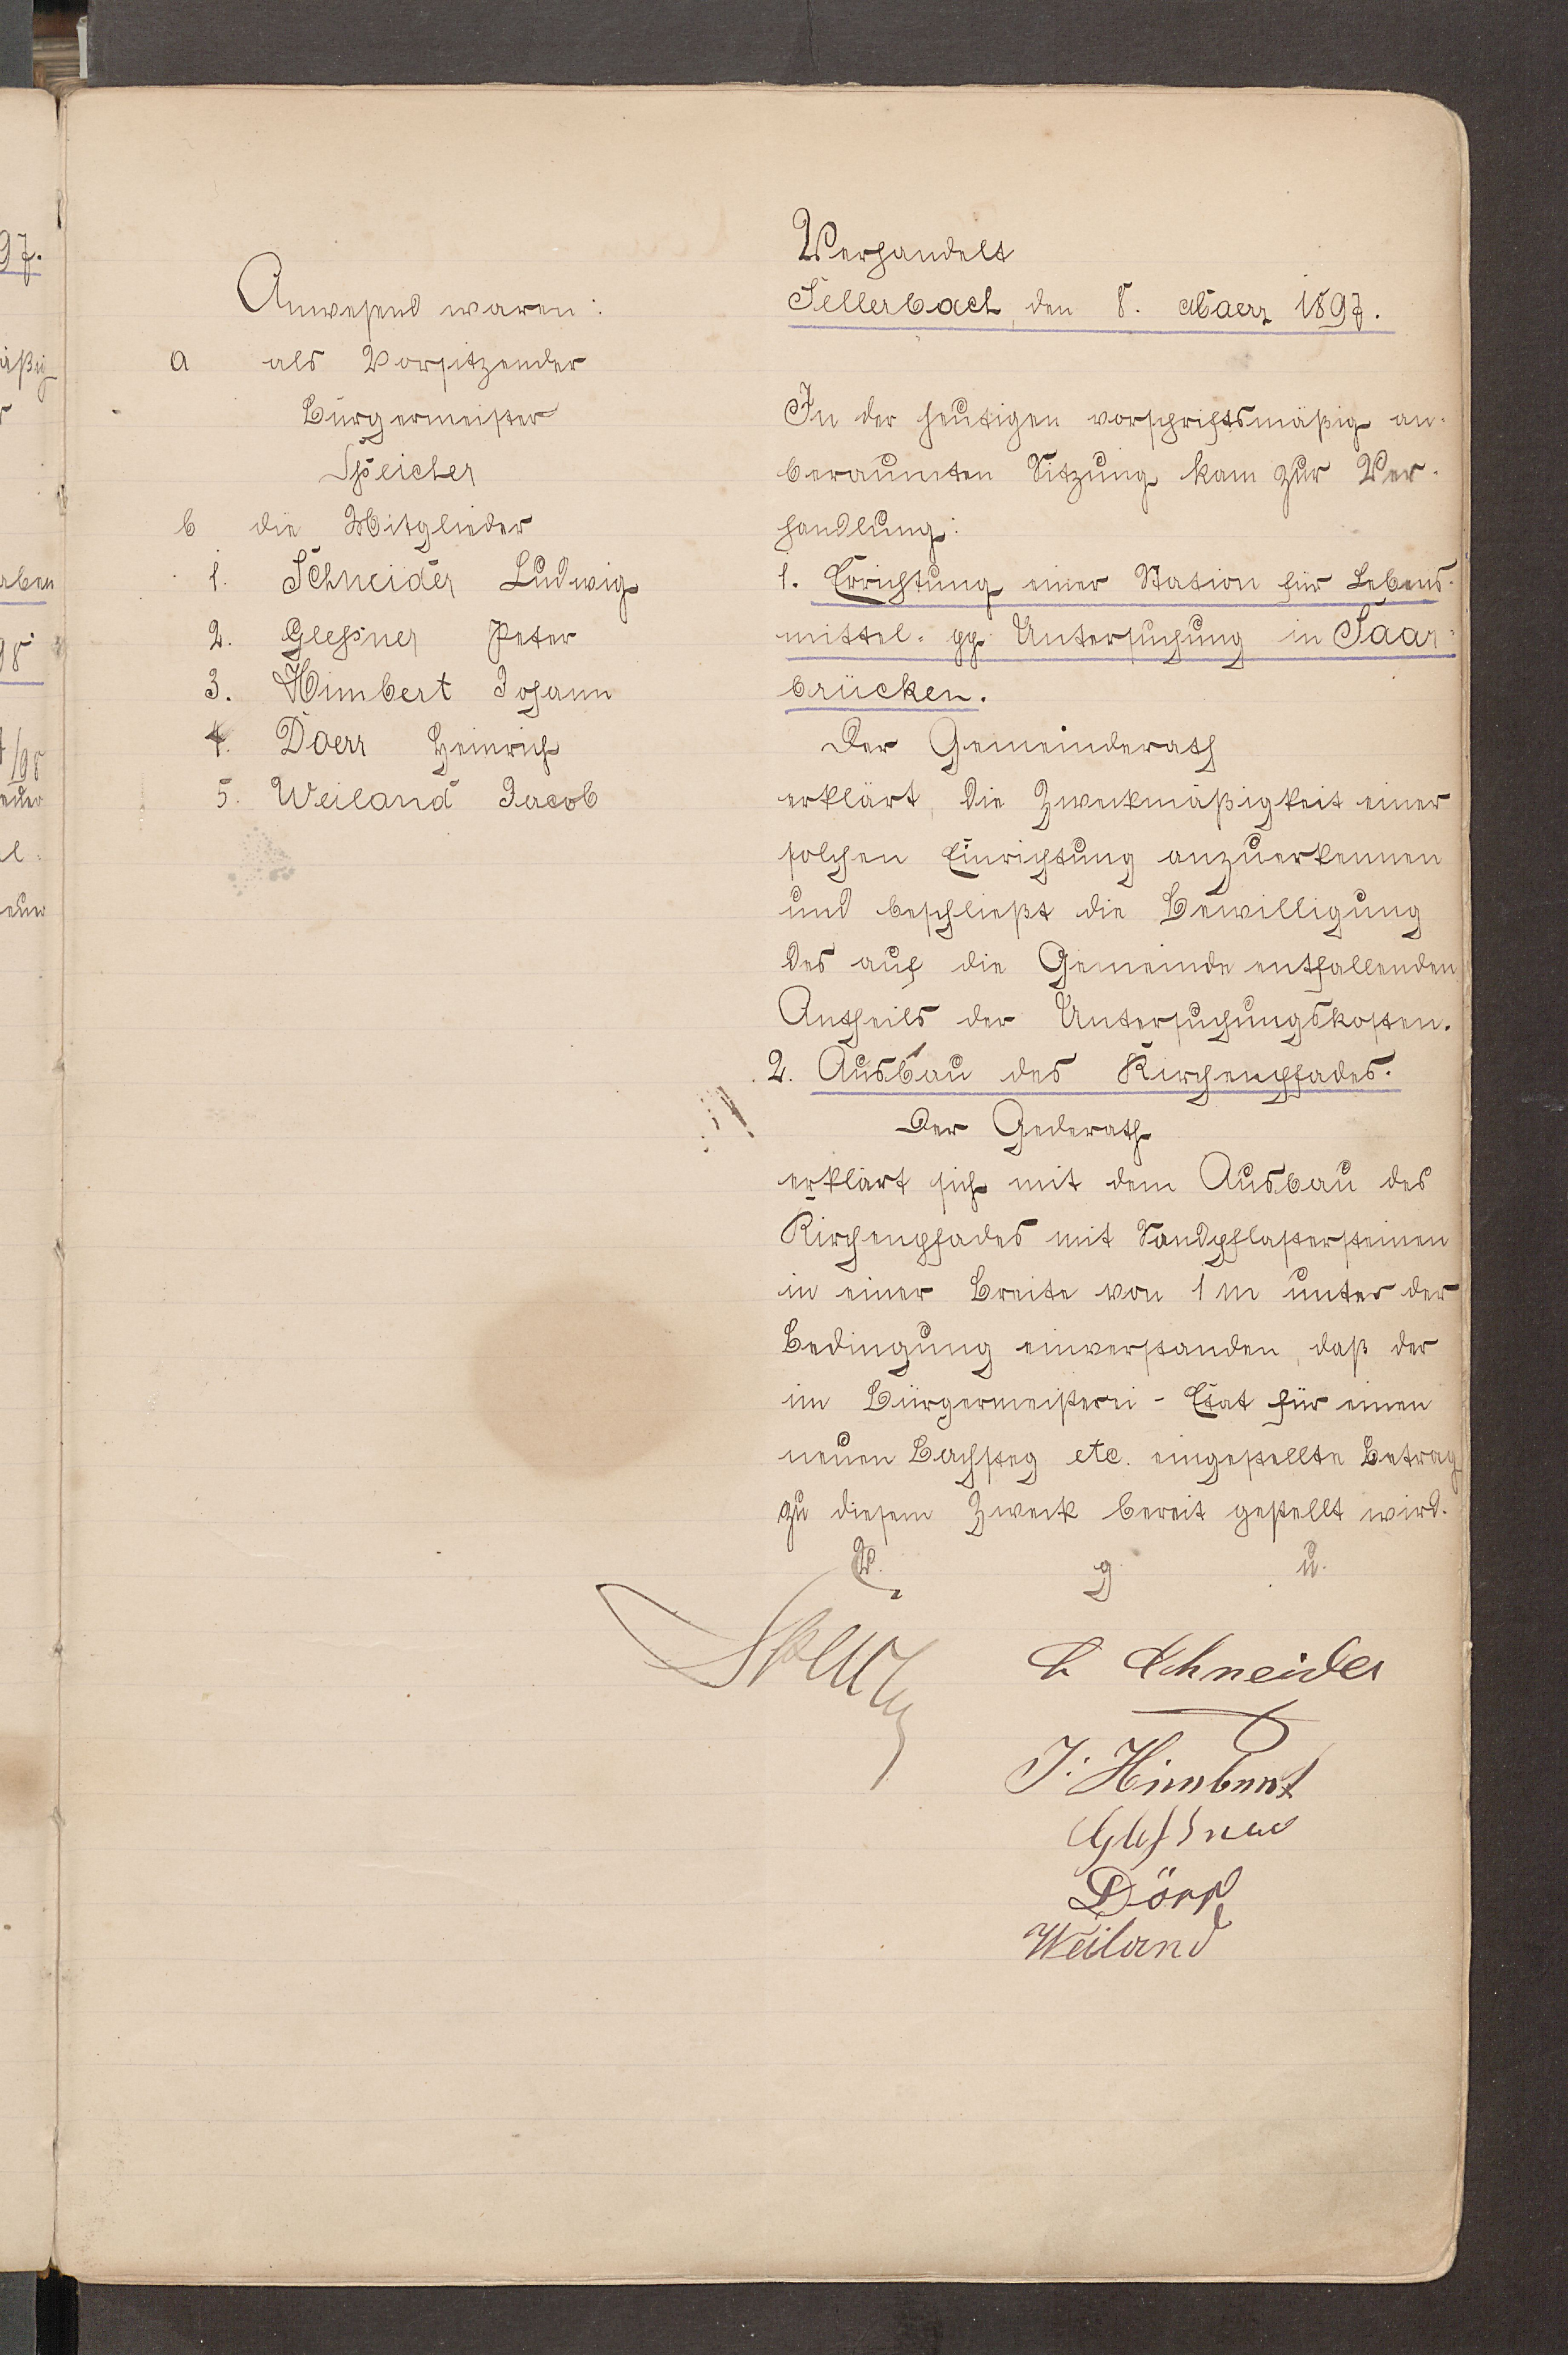 Anwesend waren:
a als Vorsitzender
Bürgermeister
Speicher
b die Mitglieder
1. Schneider Ludwig
2. Glessner Peter
3. Himbert Johann
4. Daerr Heinrich
5. Weiland Jacob
Verhandelt
Sellerbach, den 8. Maerz 1897.
In der heutigen vorschriftsmäßig an-
beraumten Sitzung kam zur Ver-
handlung:
1. Errichtung einer Station für Lebens-
mittel- pp Untersuchung in Saar-
brücken.
Der Gemeinderath
erklärt, die Zweckmäßigkeit einer
solchen Einrichtung anzuerkennen
und beschließt die Bewilligung
des auf die Gemeinde entfallenden
Antheils der Untersuchungskosten.
2. Ausbau des Kirchenpfades.
Der Gederath
erklärt sich mit dem Ausbau des
Kirchenpfades mit Sandpflastersteinen
in einer Breite von 1 m unter der
Bedingung einverstanden, daß der
im Bürgermeisterei-Etat für einen
neuen Bachsteg etc. eingestellte Betrag
zu diesem Zweck bereit gestellt wird.
V. g. u.
Speicher
L Schneider
J. Himbert
Glessner
Dörr
Weiland